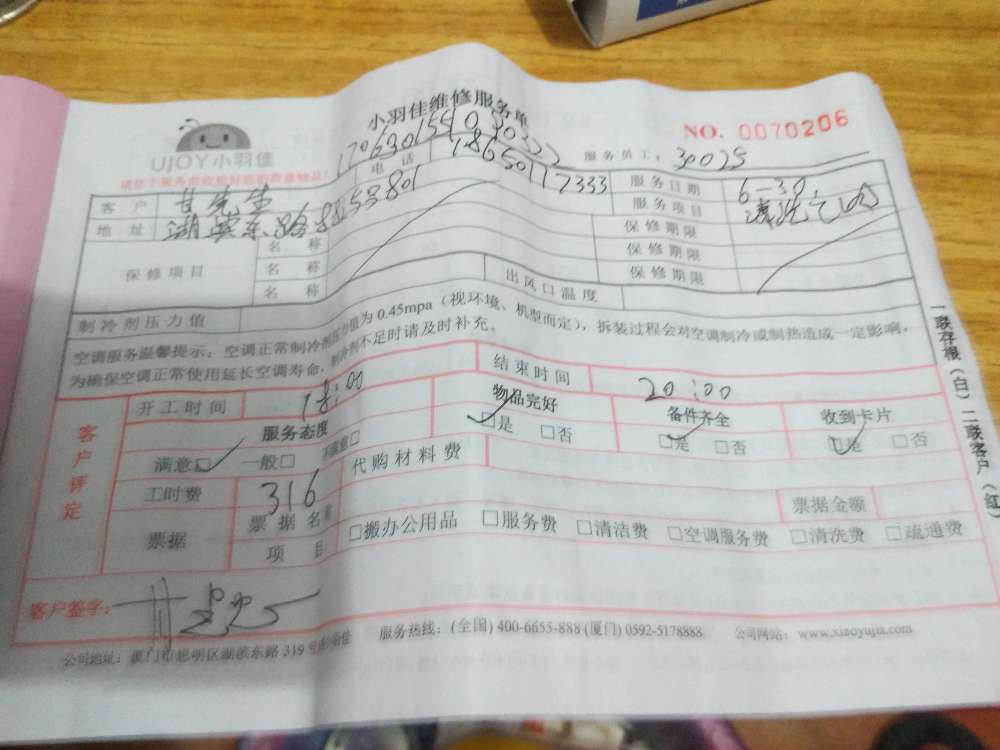 小羽佳维修服务单
NO. 0070206
UJOY小羽佳
170630155403032 服务员工: 30025
客户 甘先生 电话 18650117333 服务日期 6-30
地址 湖滨东路 服务项目
保修项目 名称 保修期限
名称 保修期限
名称 保修期限
制冷剂压力值 出风口温度
空调服务温馨提示：空调正常制冷剂压力值为 0.45mpa（视环境、机型而定），拆装过程会对空调制冷或制热造成一定影响，
为确保空调正常使用延长空调寿命，制冷剂不足时请及时补充。
客户评定
开工时间 18:00 结束时间 20:00
服务态度 物品完好 备件齐全 收到卡片
满意□ 一般□ 不满意□ □是 □否 □是 □否 □是 □否
工时费 316 代购材料费 票据金额
票据 票据名称
项目 □搬办公用品 □服务费 □清洁费 □空调服务费 □清洗费 □疏通费
客户签字:
公司地址：厦门市思明区湖滨东路 319 号 服务热线：(全国) 400-6655-888 (厦门) 0592-5178888 公司网站：www.xiaoyujia.com
一联存根（白）二联客户（红）